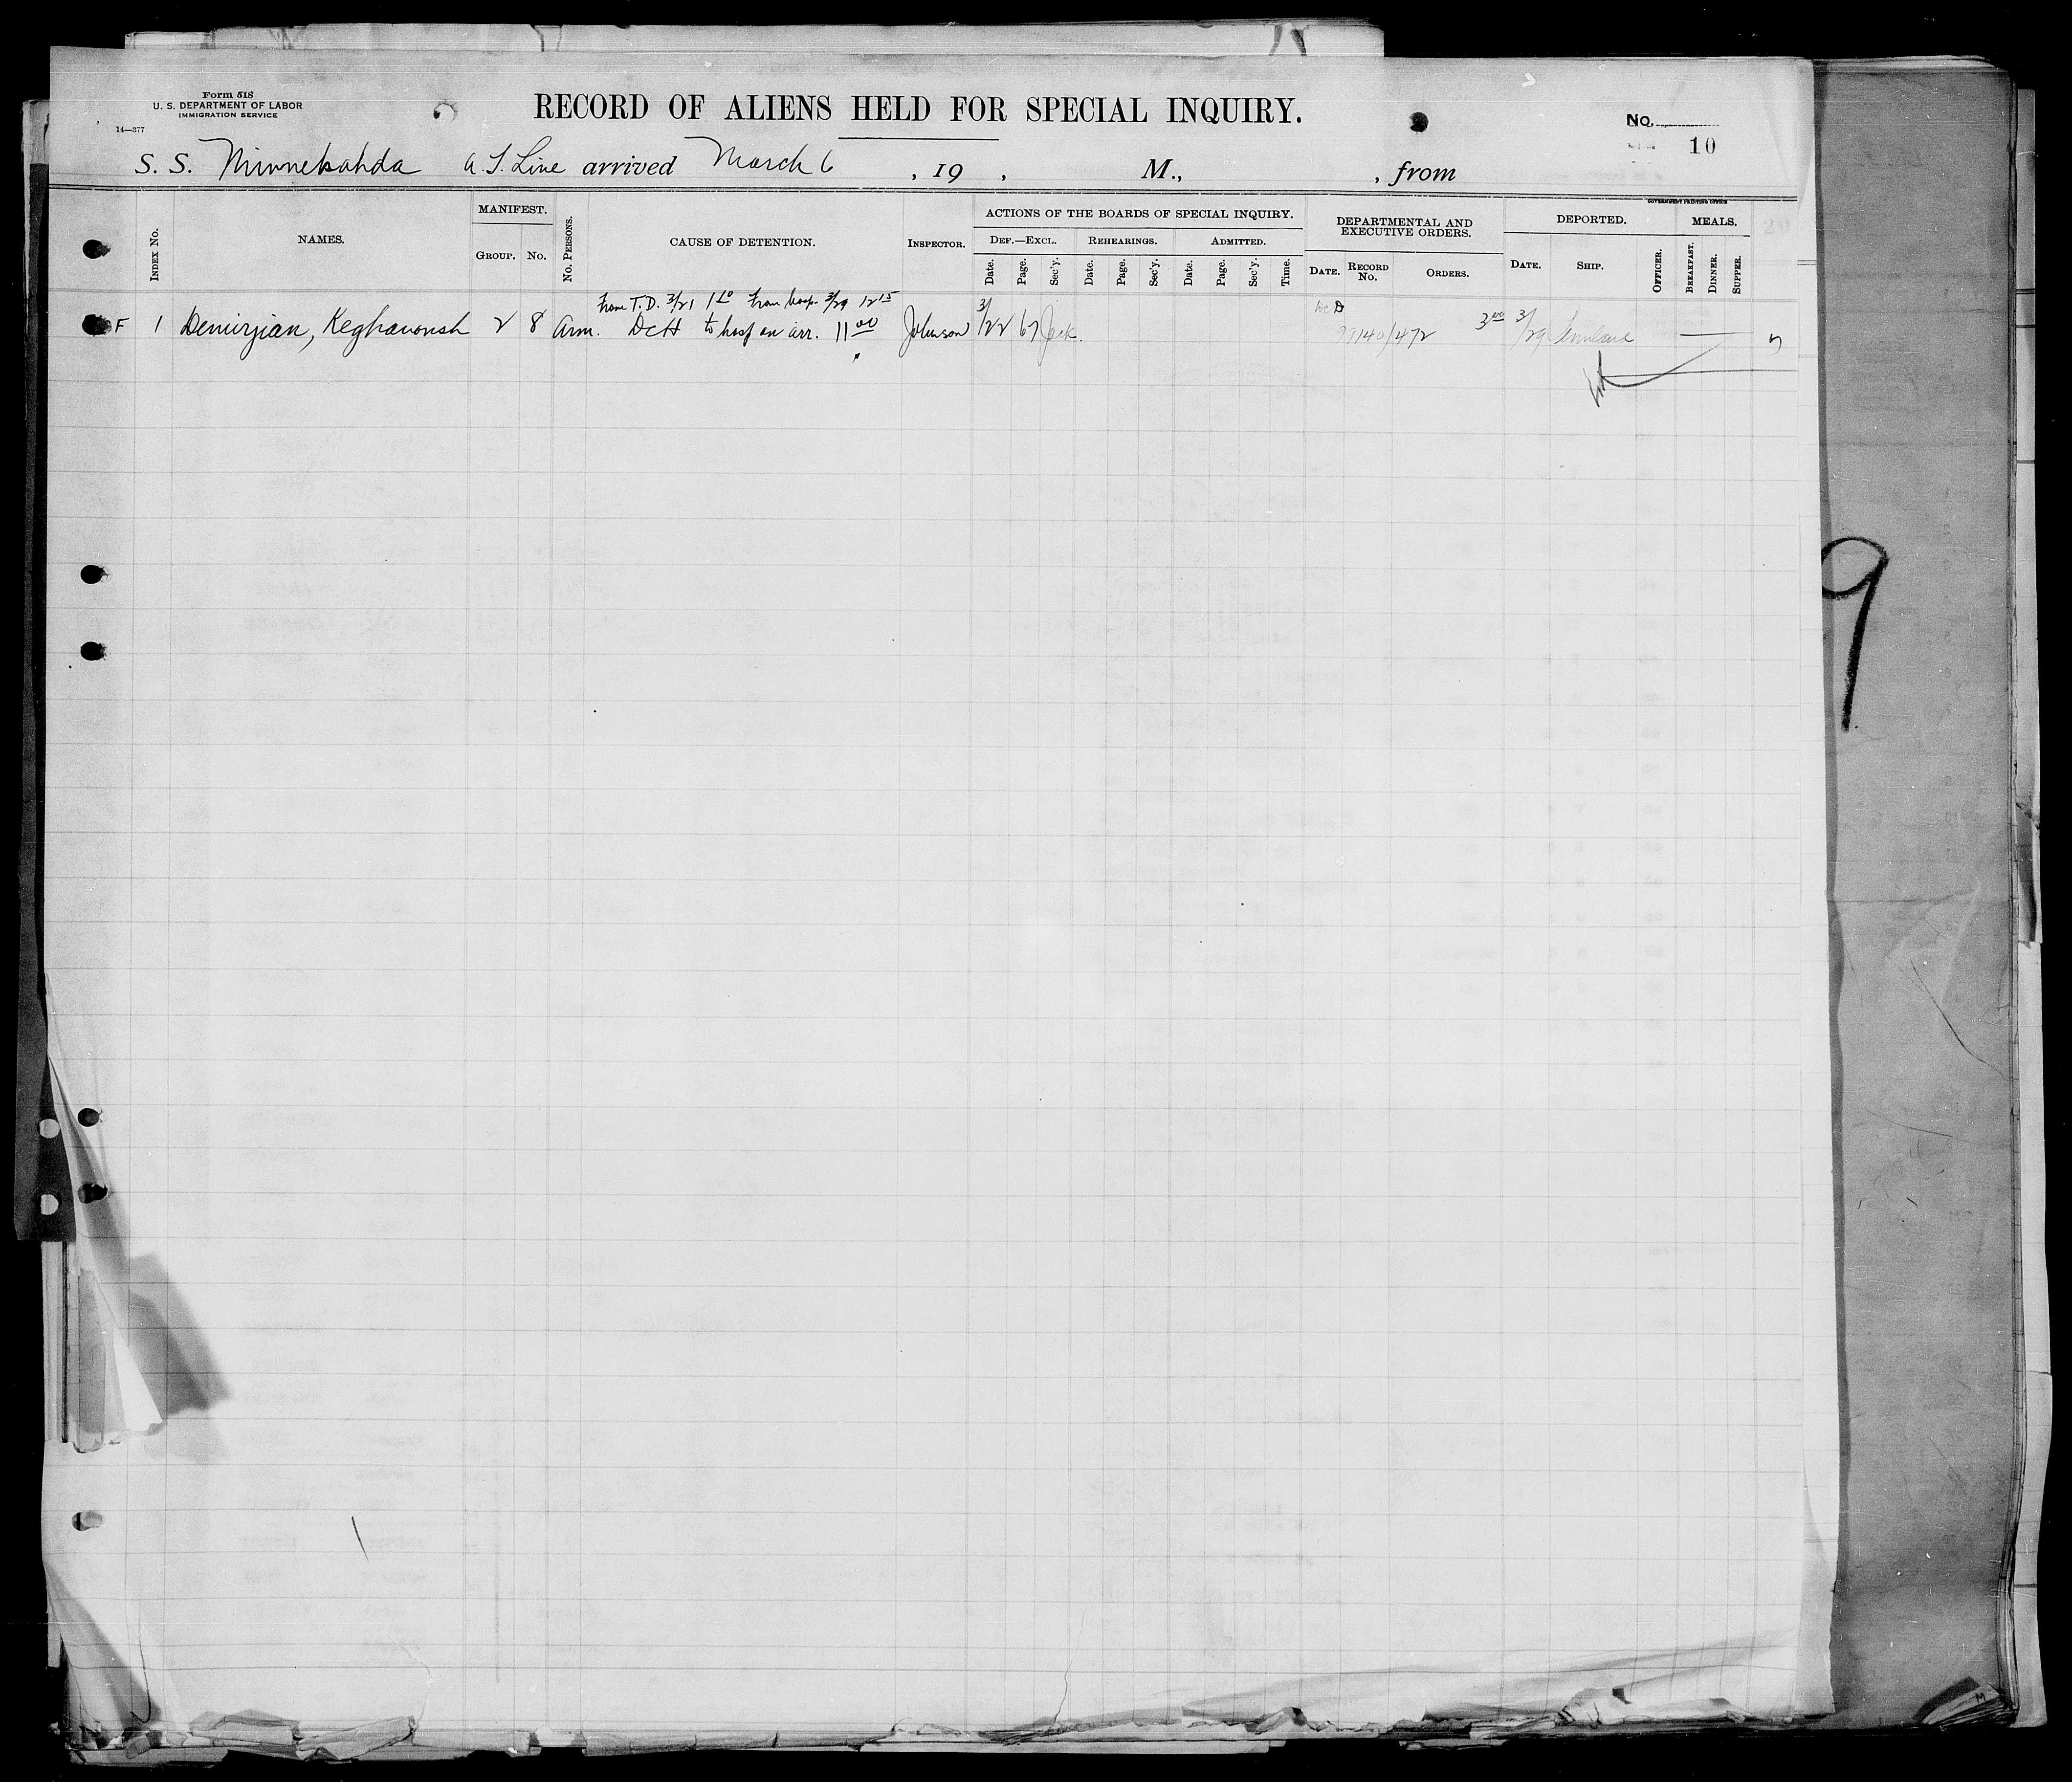 Form 518
U. S. DEPARTMENT OF LABOR
IMMIGRATION SERVICE
14—377
RECORD OF ALIENS HELD FOR SPECIAL INQUIRY.
No.
10
S. S. Minnekahda A. T. Line arrived March 6, 19 , M., , from
GOVERNMENT PRINTING OFFICE
INDEX No. NAMES. MANIFEST. GROUP. No. No. PERSONS. CAUSE OF DETENTION. INSPECTOR. ACTIONS OF THE BOARDS OF SPECIAL INQUIRY. DEPARTMENTAL AND EXECUTIVE ORDERS. DEPORTED. MEALS.
DEF.—EXCL. REHEARINGS. ADMITTED.
Date. Page. Sec'y. Date. Page. Sec'y. Date. Page. Sec'y. Time. DATE. RECORD No. ORDERS. DATE. SHIP. OFFICER. BREAKFAST. DINNER. SUPPER.
from T.D. 3/21 1 10 from hosp. 3/29 12 15
F 1 Demirjian, Keghanoush 2 8 Arm. DCH to hosp on arr. 11 00 Johnson 3/22 67 Jack. 99140/472 3 00 3/29
9